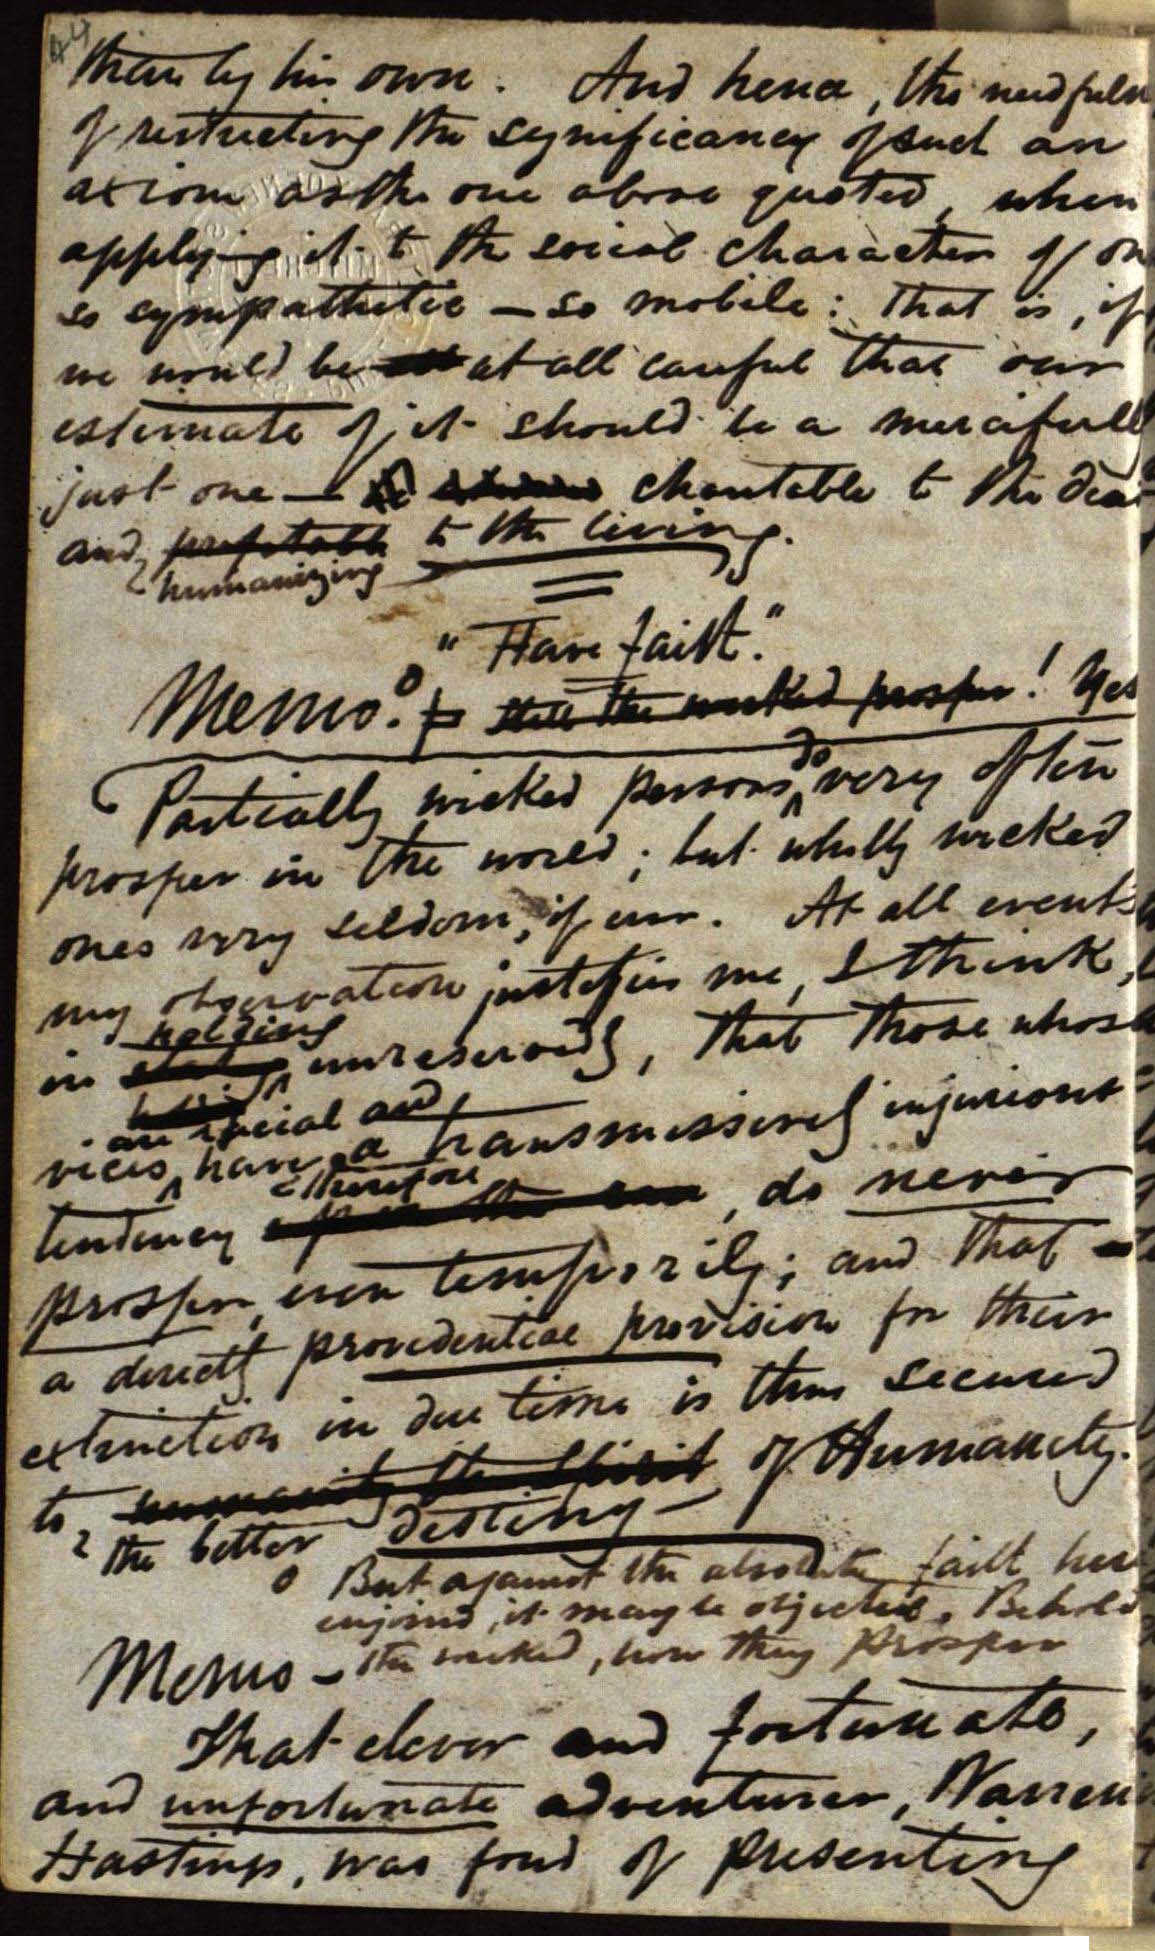 44
them by his own. And hence, the needfuln
of restricting the significancy of such an
axiom as the one above quoted, when
applying it to the social character of on
so sympathetic — so mobile: that is, if
we would be at all careful that our
estimate of it should be a mercifull
just one — charitable to the dea
and profitable to the living.
humanizing
"Have faith."
Memo. still the wicked prosper! Yes
do
Partially wicked persons very often
prosper in the world; but wholly wicked
ones very seldom, if ever. At all events
my observation justifies me, I think,
holding
in unreservedly, that those whose
are social and
vices, have a transmissively injurious
therefore
tendency, do never
prosper, even temporily; and that
a directly providential provision for their
extinction in due time is thus secured
to humanity the spirit of Humanity.
the better destiny —
But against the absolute faith her
enjoined, it may be objected, Behold
Memo — the wicked, how they prosper
That clever and fortunate,
and unfortunate adventurer, Warren
Hastings, was fond of presenting